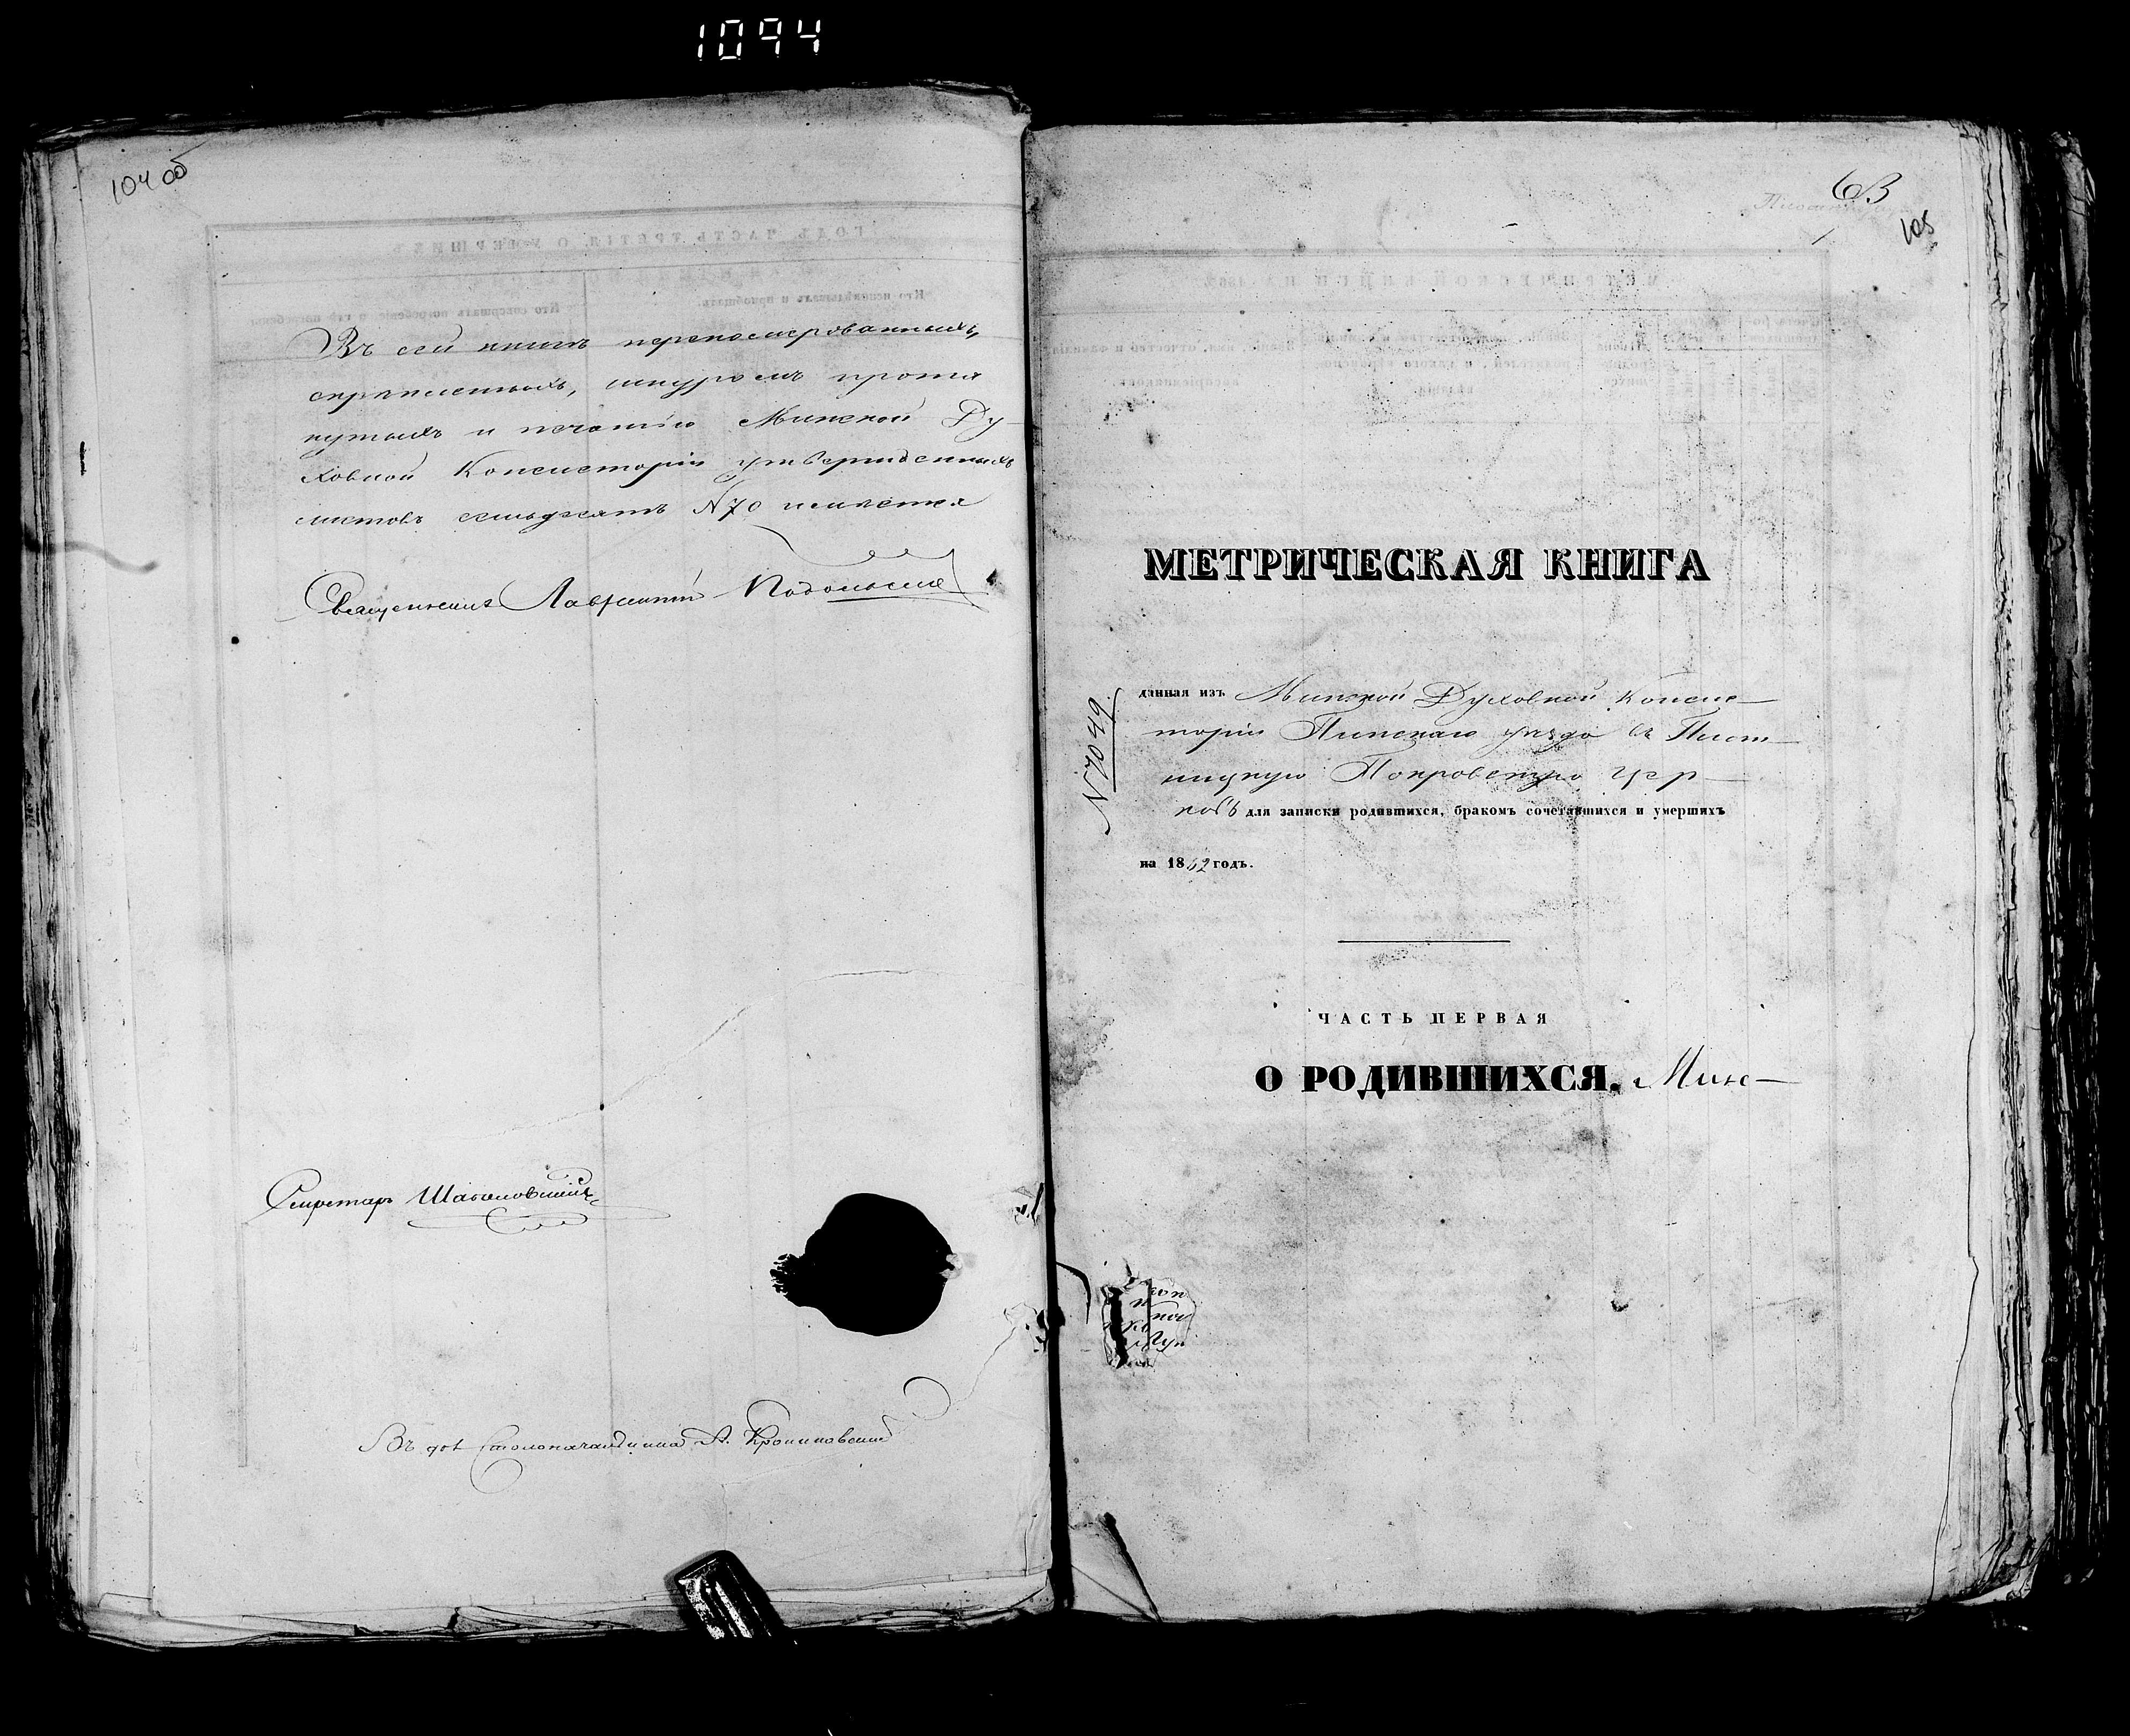 1094
104 об
Въ сей книгѣ перенумерованныхъ,
скрѣпленныхъ, шнуромъ протя
нутыхъ и печатью Минской Ду-
ховной Консисторіи утвержденныхъ
листовъ семьдесятъ №70 имѣется
Священникъ Лаврентій Подольскій
Секретарь
Въ дол. Столоначальника А.
63
105
МЕТРИЧЕСКАЯ КНИГА
№ 7049
данная изъ Минской Духовной Консис-
торіи Пинскаго уѣзда въ
Покровскую Цер-
ковь для записки родившихся, бракомъ сочетавшихся и умершихъ
на 1862 годъ.
ЧАСТЬ ПЕРВАЯ
О РОДИВШИХСЯ. Минс-